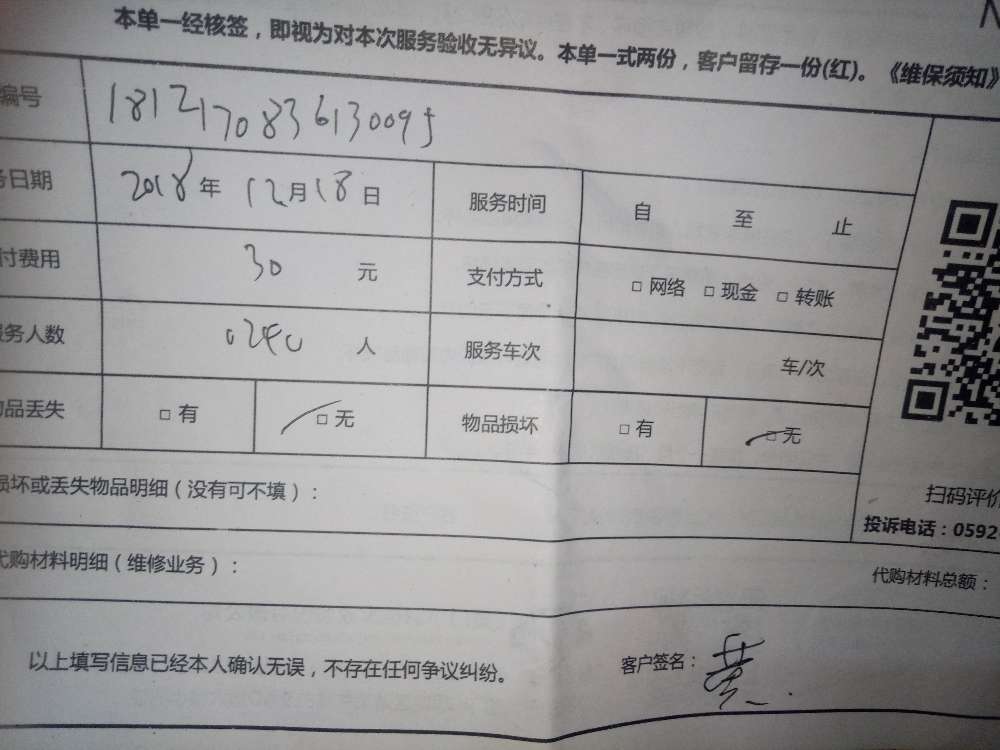 本单一经核签，即视为对本次服务验收无异议。本单一式两份，客户留存一份(红)。《维保须知》
编号 1812170836130095
务日期 2018年12月18日 服务时间 自 至 止
付费用 30 元 支付方式 □ 网络 □ 现金 □ 转账
服务人数 0240 人 服务车次 车/次
物品丢失 □ 有 □ 无 物品损坏 □ 有 □ 无
损坏或丢失物品明细（没有可不填）：
扫码评价
投诉电话：0592
代购材料明细（维修业务）： 代购材料总额：
以上填写信息已经本人确认无误，不存在任何争议纠纷。 客户签名：黄